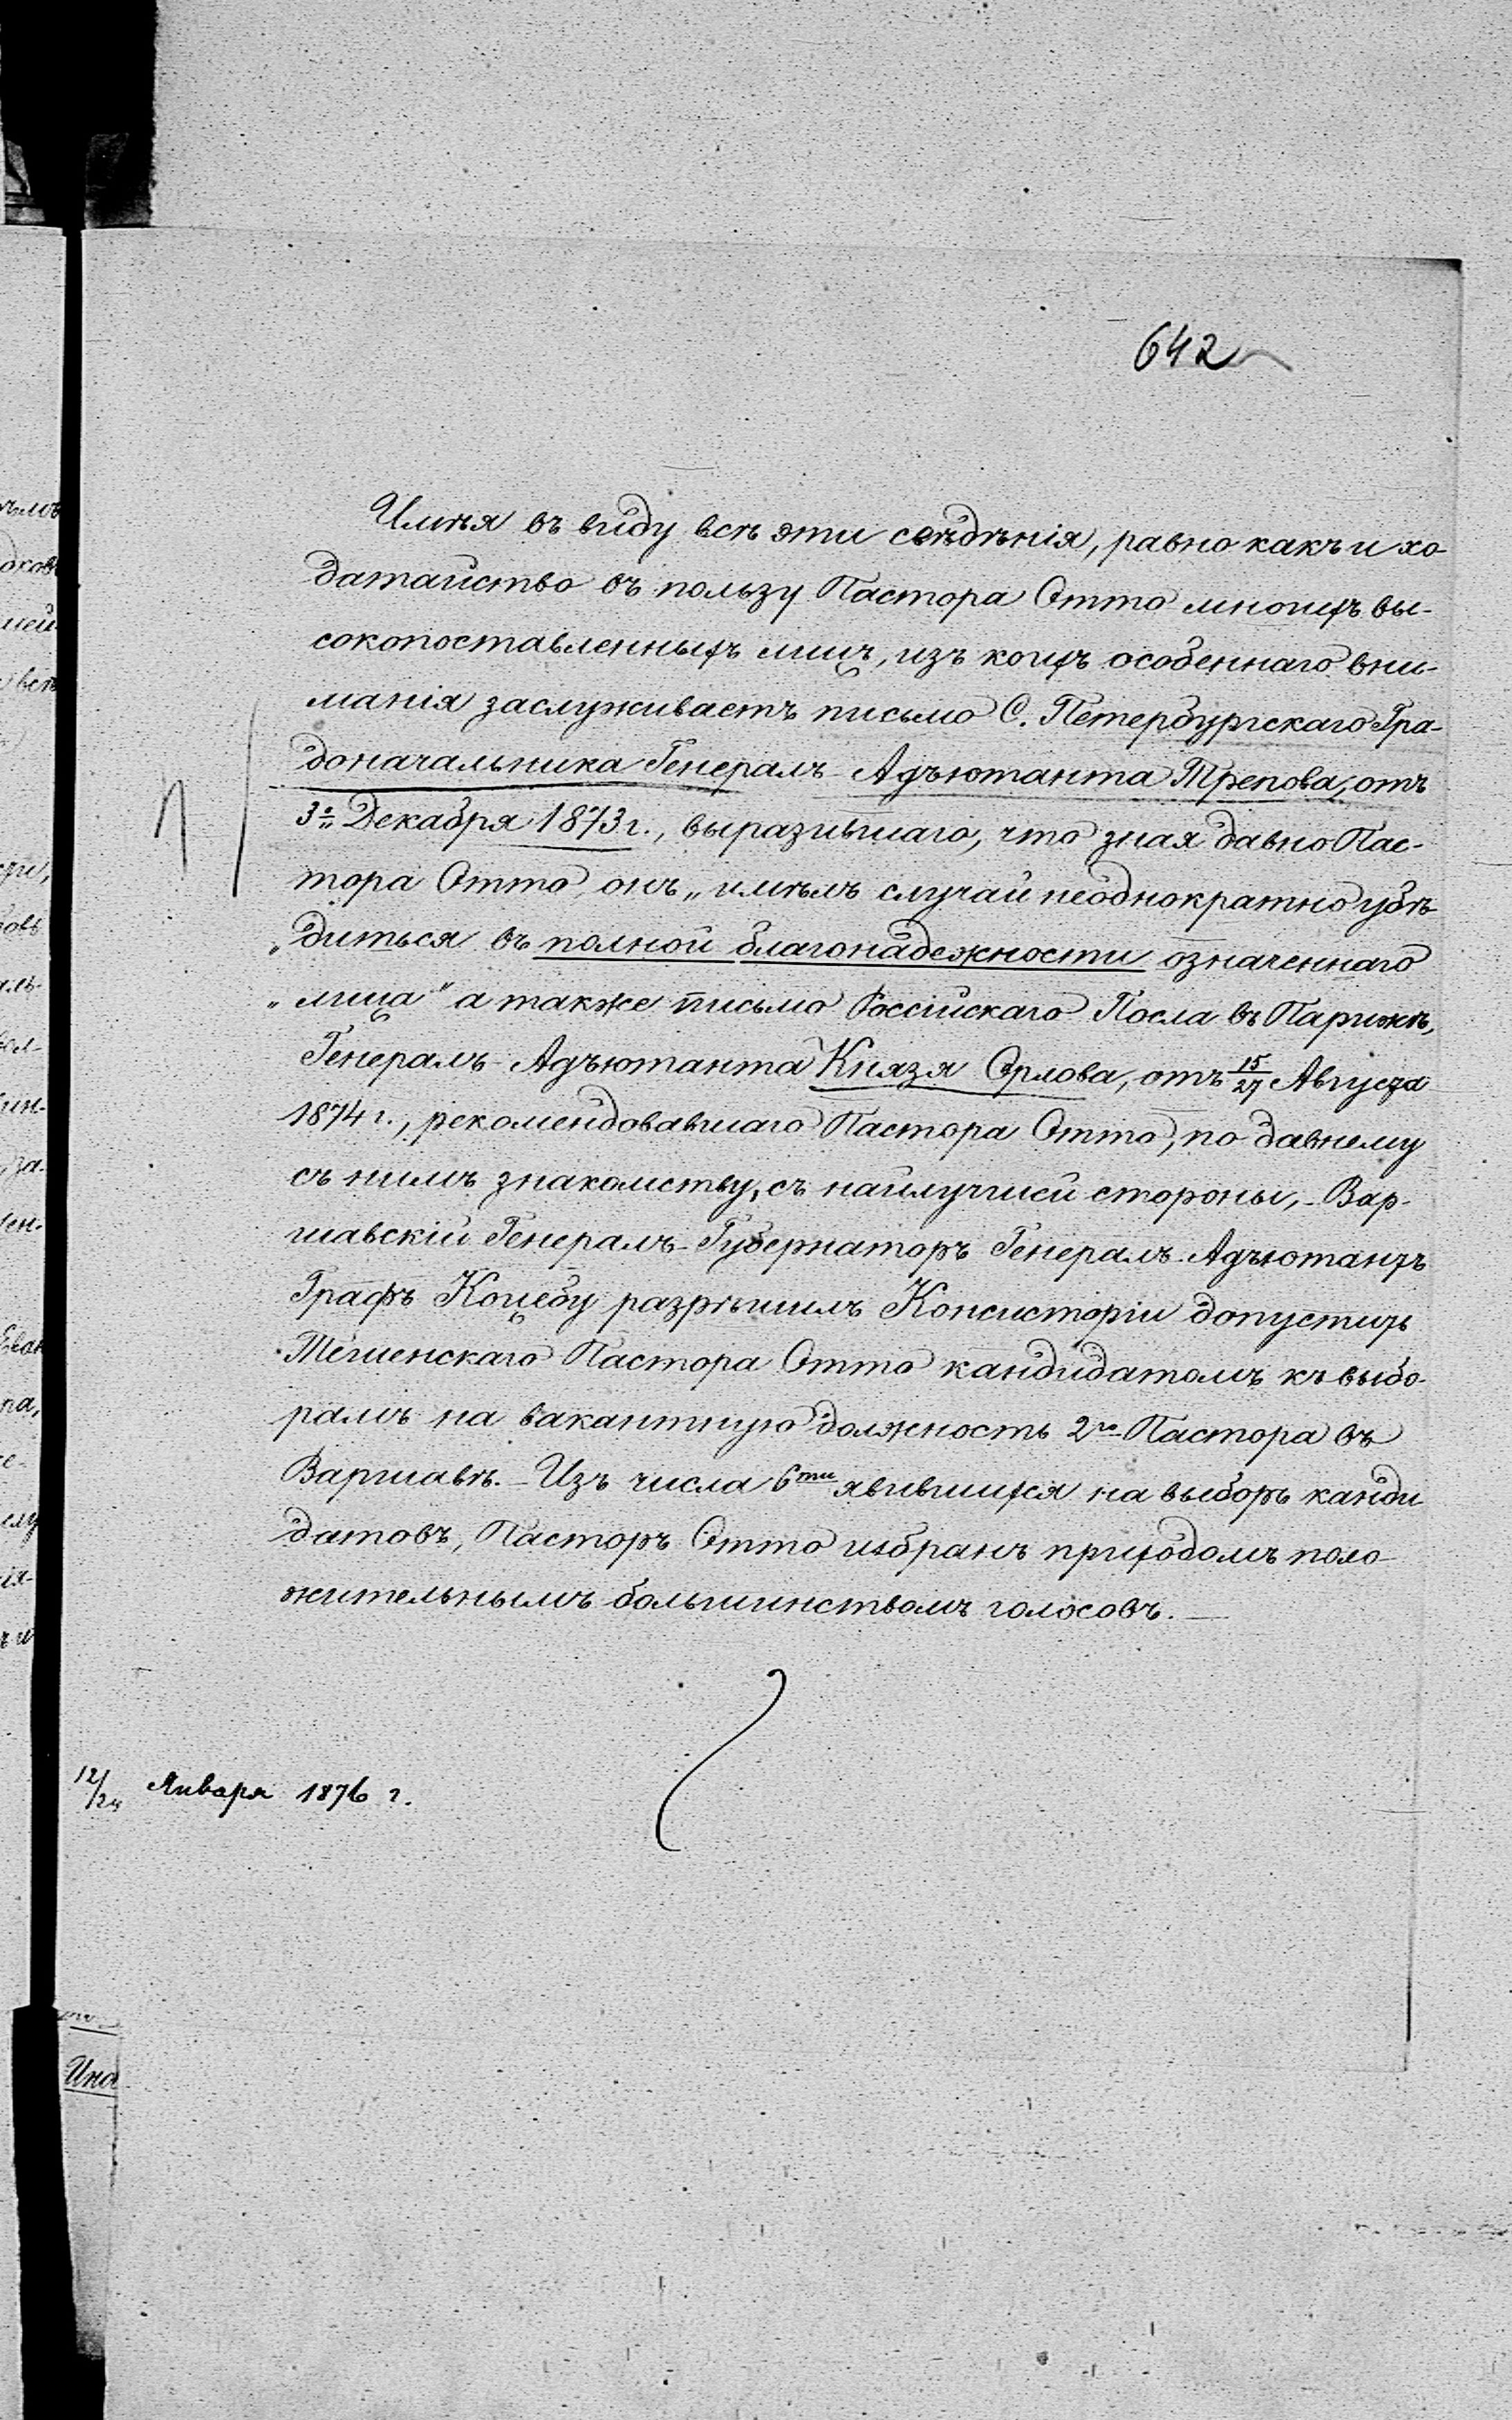 642
Имѣя въ виду всѣ эти свѣдѣнія, равно какъ и хо-
датайство въ пользу Пастора Отто многихъ вы-
сокопоставленныхъ лицъ, изъ коихъ особеннаго вни-
манія заслуживаетъ письмо С. Петербургскаго Гра-
доначальника Генералъ-Адъютанта Трепова, отъ
3го Декабря 1873 г., выразившаго, что зная давно Пас-
тора Отто онъ „имѣлъ случай неоднократно убѣ
„диться въ полной благонадежности означеннаго
„лица" а также письмо Россійскаго Посла въ Парижѣ,
Генералъ-Адъютанта Князя Орлова, отъ 15/27 Августа
1874 г., рекомендовавшаго Пастора Отто, по давнему
съ нимъ знакомству, съ наилучшей стороны, - Вар-
шавскій Генералъ-Губернаторъ Генералъ-Адъютантъ
Графъ Коцебу разрѣшилъ Консисторіи допустить
Тешенскаго Пастора Отто кандидатомъ къ выбо-
рамъ на вакантную должность 2го Пастора въ
Варшавѣ. - Изъ числа 6ти явившихся на выборъ канди
датовъ, Пасторъ Отто избранъ приходомъ поло-
жительнымъ большинствомъ голосовъ. —
12/24 Января 1876 г.